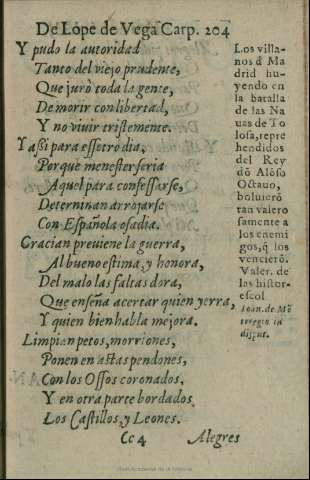 De Lope de Vega Carp. 204
Y pudo la autoridad
Tanto del viejo prudente,
Que jurò toda la gente,
De morir con libertad,
Y no vivir tristemente.
Y aßi para essotro dia,
Porque menester seria
Aquel para confessarse,
Determinan arrojarse
Con Española osadia.
Gracian previene la guerra,
Al bueno estima, y honora,
Del malo las faltas dora,
Que enseña acertar quien yerra,
Y quien bien habla mejora.
Limpian petos, morriones,
Ponen en astas pendones,
Con los Ossos coronados,
Y en otra parte bordados
Los Castillos, y Leones.
Cc 4 Alegres
Los villa-
nos d̃ Ma
drid hu-
yendo en
la batalla
de las Na
uas de To
losa, repre
hendidos
del Rey
dõ Alõso
Octauo,
boluierõ
tan valero
samente a
los enemi
gos, q̃ los
vencierõ.
Valer. de
las histor-
escol
Ioan. de Mõ
teregio in
disput.